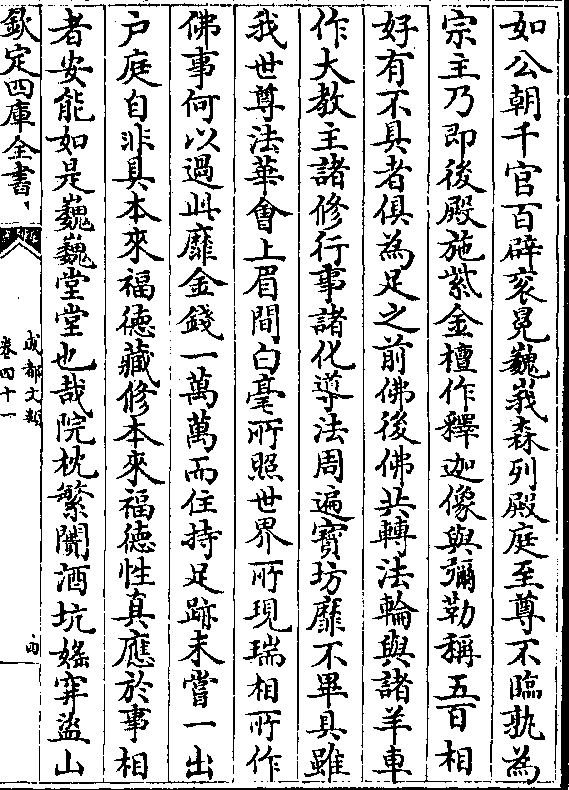 如公朝千官百辟衮冕巍峩森列殿庭至尊不臨孰為
宗主乃即後殿施紫金檀作釋迦像與彌勒稱五百相
好有不具者俱為足之前佛後佛共轉法輪與諸羊車
作大教主諸修行事諸化導法周遍寶坊靡不畢具雖
我世尊法華會上眉間白毫所照世界所現瑞相所作
佛事何以過此靡金錢一萬萬而住持足跡未嘗一出
户庭自非具本來福徳藏修本來福徳性真應於事相
者安能如是巍巍堂堂也哉院枕繁闠酒坑婬穽盗山
欽定四庫全書
成都文類
卷四十一